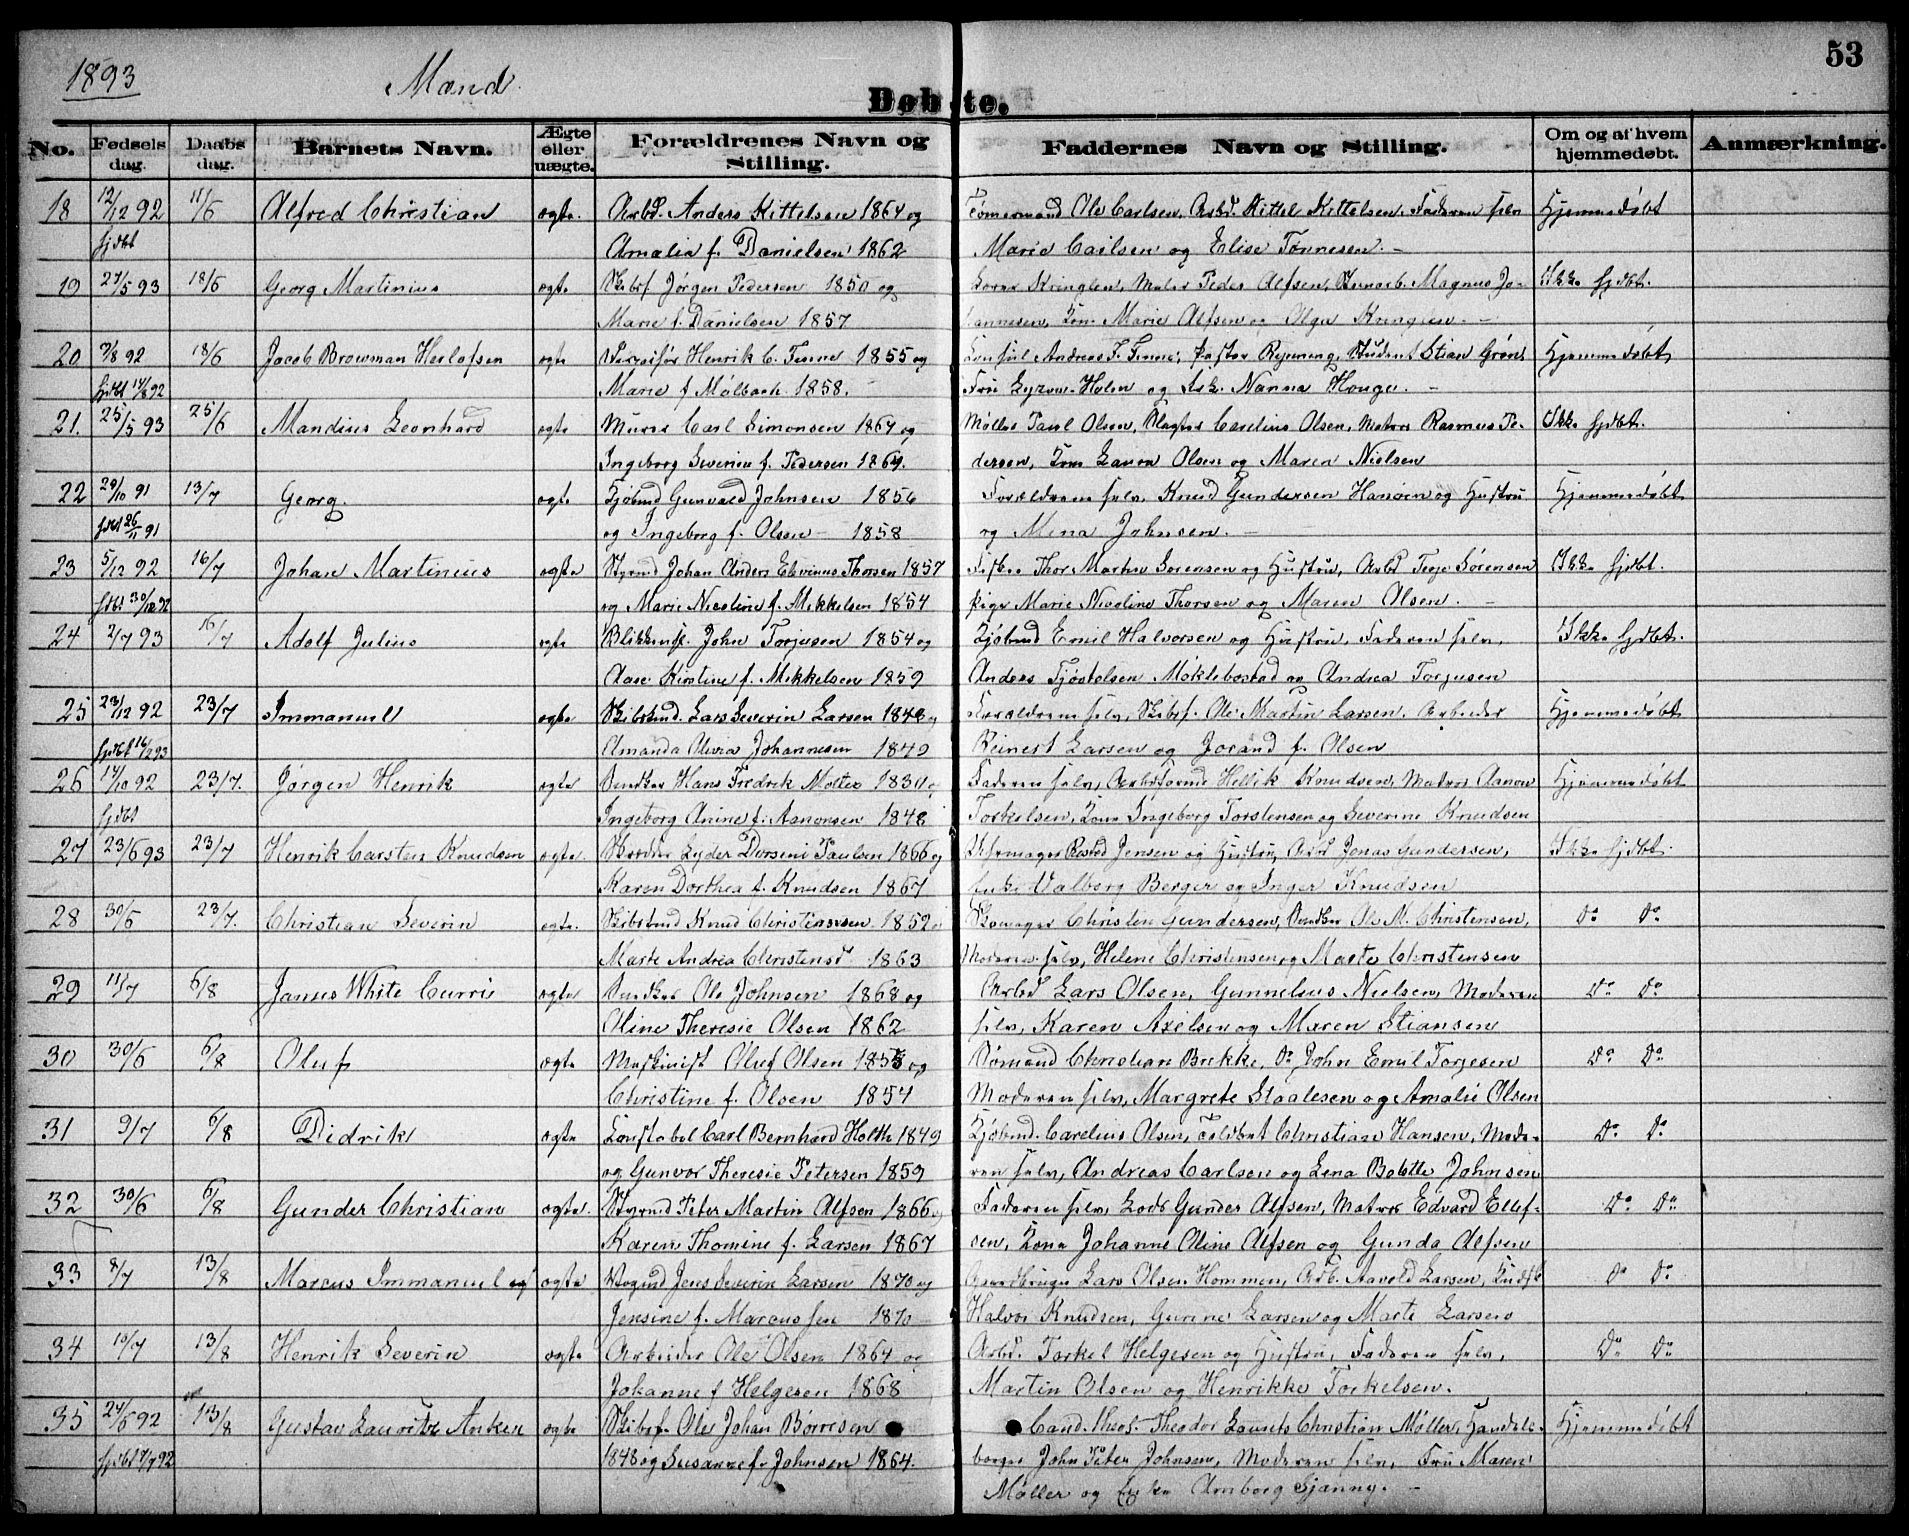 1893 Mænd. 53
Døbte.
No. Fødsels dag. Daabs dag. Barnets Navn. Ægte eller uægte. Forældrenes Navn og Stilling. Faddernes Navn og Stilling. Om og af hvem hjemmedøbt. Anmærkning.
18 12/12 92 11/6 Alfred Christian ægte. Arbd. Anders Kittelsen 1864 og Tømermand Ole Carlsen, Arbd Kittel Kittelsen, Faderen selv Hjemmedøbt
hjdbt Amalia f. Danielsen 1862 Marie Carlsen og Elise Tønnesen.
19 27/5 93 18/6 Georg Martinius ægte Skibsf Jørgen Pedersen 1850 og Kringlen, Maler Peder Alfsen, Magnus Jo- Ikke hjdbt.
Marie f. Danielsen 1857 hannesen, Kone Marie Alfsen og Olga Kringlen.
20 7/8 92 18/6 Jacob Browman Herlofsen ægte Henrik C. Finne 1855 og Andreas F. Finne, Pastor Student Stian Grøn, Hjemmedøbt
hjdbt 14/8 92 Marie f Mølbach 1858. Fru Holm og Frk. Nanna Houge.
21. 25/5 93 25/6 Mandius Leonhard ægte Murer Carl Simonsen 1864 og Møller Paul Olsen, Slagter Carelius Olsen, Matros Rasmus Pe- Ikke hjdbt.
Ingeborg Severine f. Pedersen 1864. dersen, Kone Laura Olsen og Maren Nielsen
22 29/10 91 13/7 Georg. ægte Kjøbmd Gunvald Johnsen 1856 Forældrene selv, Knud Gundersen Hansen og Hustru Hjemmedøbt
hjdbt 26/11 91 og Ingeborg f. Olsen 1858 og Mena Johnsen.
23 5/12 92 16/7 Johan Martinius ægte Styrmd Johan Anders Elevinus Thorsen 1857 Fisker Thor Martin Sørensen og Hustru, Arbd Terje Sørensen Ikke hjdbt.
hjdbt 30/12 92 og Marie Nicoline f. Mikkelsen 1854 Pige Marie Nicoline Thorsen og Maren Olsen.
24 2/7 93 16/7 Adolf Julius ægte Blikkensl. John Torjusen 1854 og Kjøbmd Emil Halvorsen og Hustru, Faderen selv, Ikke hjdbt.
Aase Kirstine f. Mikkelsen 1859 Anders Tjøstelsen Møklebostad og Andrea Torjusen
25 23/12 92 23/7 Immanuel ægte Skibstmd. Lars Severin Larsen 1848 og Forældrene selv, Skibsf. Ole Martin Larsen, Arbeider Hjemmedøbt
hjdbt 16/1 93 Amanda Olivia Johannesen 1849 Reinert Larsen og Jorand f. Olsen
26 14/10 92 23/7. Jørgen Henrik ægte Snedker Hans Fredrik Molter 1830 og Faderen selv, Arbdsformd Hellik Knudsen, Matros Aanon Hjemmedøbt
hjdbt Ingeborg Anine f. Aanonsen 1848 Torkelsen, Kone Ingeborg Torstensen og Severine Knudsen
27 23/6 93 23/7 Henrik Carsten Knudsen ægte. Skræder Lyder Dorseni Paulsen 1866 og Jensen og Hustru, Arbd Jonas Gundersen, Ikke hjdbt.
Karen Dorthea f. Knudsen 1867 Enke Valborg Berger og Inger Knudsen
28 30/5 23/7. Christian Severin ægte. Skibstmd Knud Christiansen 1852 og Skomager Christen Gundersen, Snedker Ole M. Christensen, Do Do
Marte Andrea Christensd. 1863 Moderen selv, Helene Christensen og Marte Christensen
29 11/7 6/8 James White Currie ægte Snedker Ole Johnsen 1868 og Arbd Lars Olsen, Gunnelsus Nielsen, Moderen Do Do
Oline Theresie Olsen 1862 selv, Karen Axelsen og Maren Stiansen
30 30/6 6/8 Oluf ægte Maskinist Oluf Olsen 1853 og Sømand Christian Brekke, Do John Emil Torjesen Do Do
Christine f. Olsen 1854 Moderen selv, Margrete Staalesen og Amalie Olsen
31 9/7 6/8 Didrik ægte Konstabel Carl Bernhard Holth 1849 Kjøbmd. Carelius Olsen, Toldbet Christian Hansen, Mode- Do Do
og Gunvor Theresie Petersen 1859 ren selv, Andreas Carlsen og Lena Bolette Johnsen
32 30/6 6/8 Gunder Christian ægte. Styrmd Peter Martin Alfsen 1866 og Faderen selv, Lods Gunder Alfsen, Matros Edvard Ellef- Do Do
Karen Thomine f. Larsen 1867 sen, Kone Johanne Oline Alfsen og Gunda Alfsen
33 8/7 13/8 Marcus Immanuel ægte Jens Severin Larsen 1870 og Gaardbruger Lars Olsen Hommen, Arb. Aavold Larsen, Do Do
Jensine f. Marcussen 1870 Halvor Knudsen, Gurine Larsen og Marte Larsen
34 10/7 13/8 Henrik Severin ægte Arbeider Ole Olsen 1864 og Arbd. Torkel Helgesen og Hustru, Faderen selv, Do Do
Johanne f Helgesen 1868 Martin Olsen og Henrikke Torkelsen.
35 24/6 92 13/8 Gustav Lauritz Anker ægte Skibsf. Ole Johan Børresen Cand. theol. Theodor Lauritz Christian Møller, Handels- Hjemmedøbt
hjdbt 17/7 92 1848 og Susanne f. Johnsen 1864. borger John Peter Johnsen, Moderen selv, Fru Maren
Møller og Amborg Gjanny.